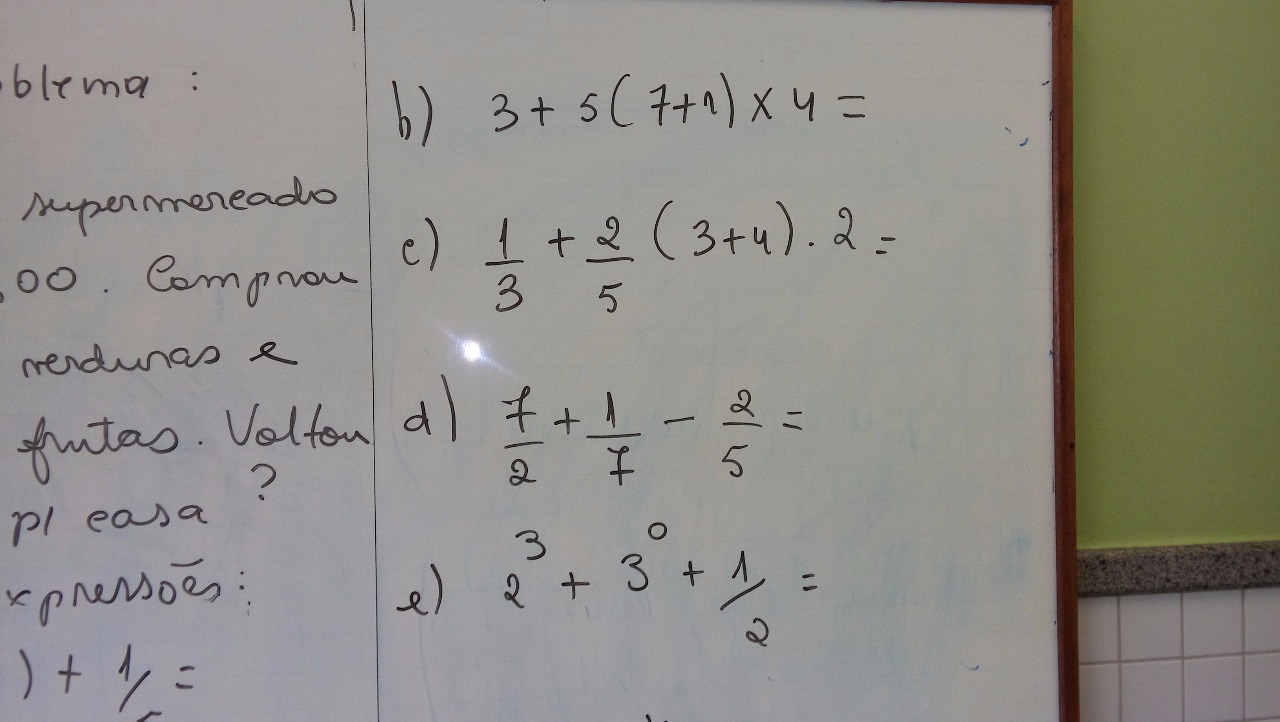 blema :
supermercado
,00. Comprou
verduras e
frutas. Voltou
?
p/ casa
xpressões:
) + 1/5 =
b) 3 + 5 ( 7+1 ) x 4 =
c) 1/3 + 2/5 ( 3+4 ) . 2 =
d) 7/2 + 1/7 - 2/5 =
e) 2³ + 3⁰ + 1/2 =